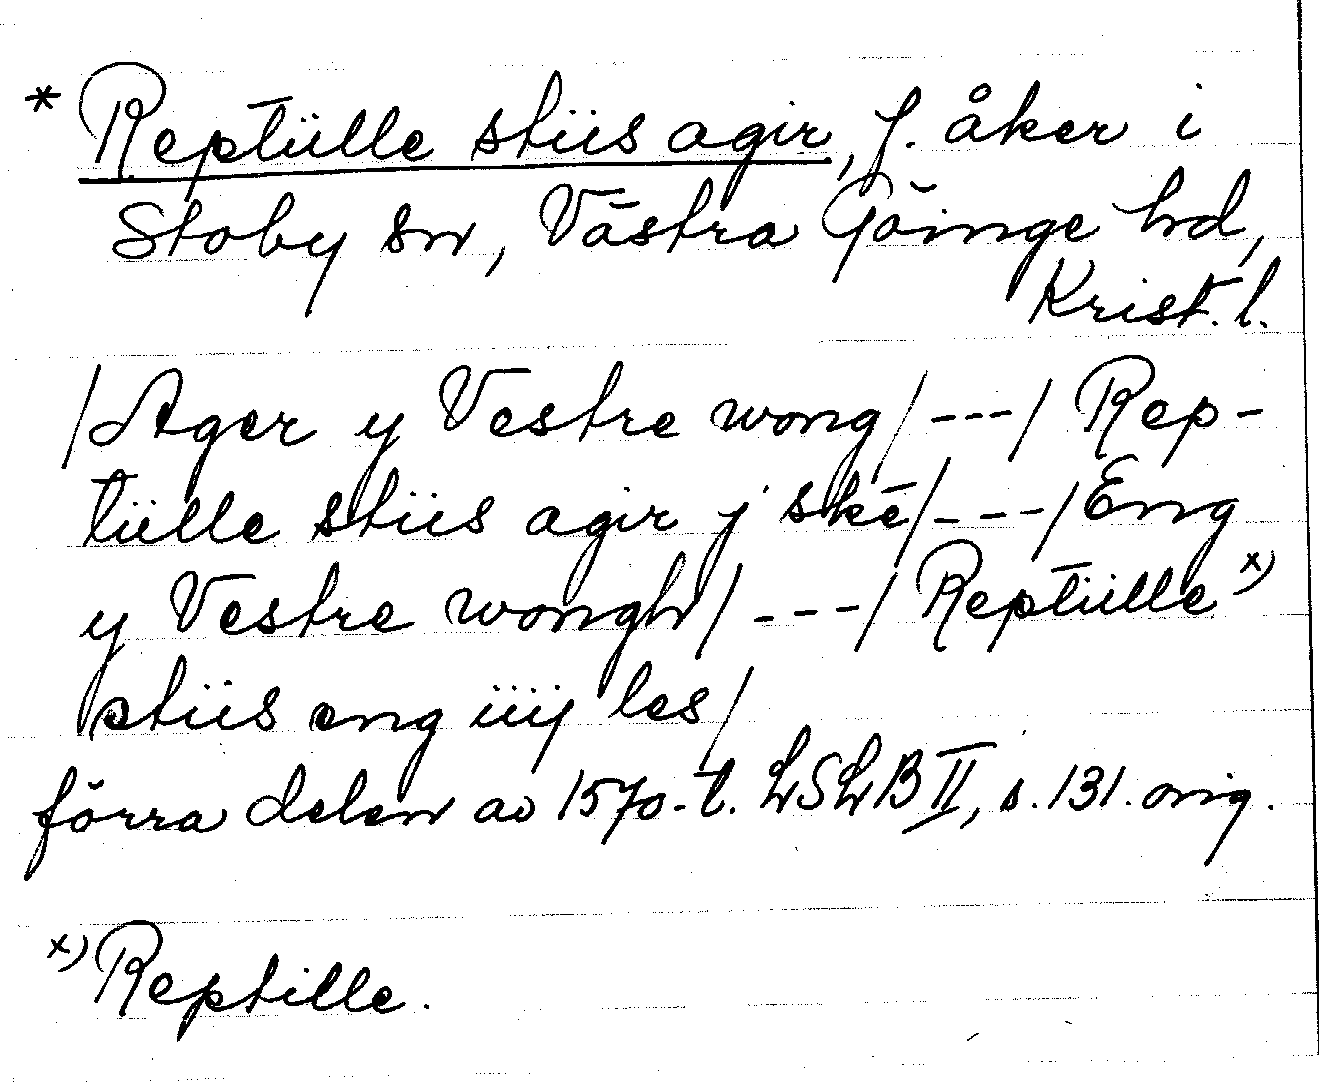 * Reptiille stiis agir, f. åker i
Stoby sn, Västra Göinge hd,
Krist. l.
/Ager y Vestre wong/---/ Rep-
tiille stiis agir j skē/---/Eng
y Vestre wongh/---/Reptiille x)
stiis eng iiij les/
förra delen av 1570-t. LSLB II, s. 131. orig.
x) Reptille.